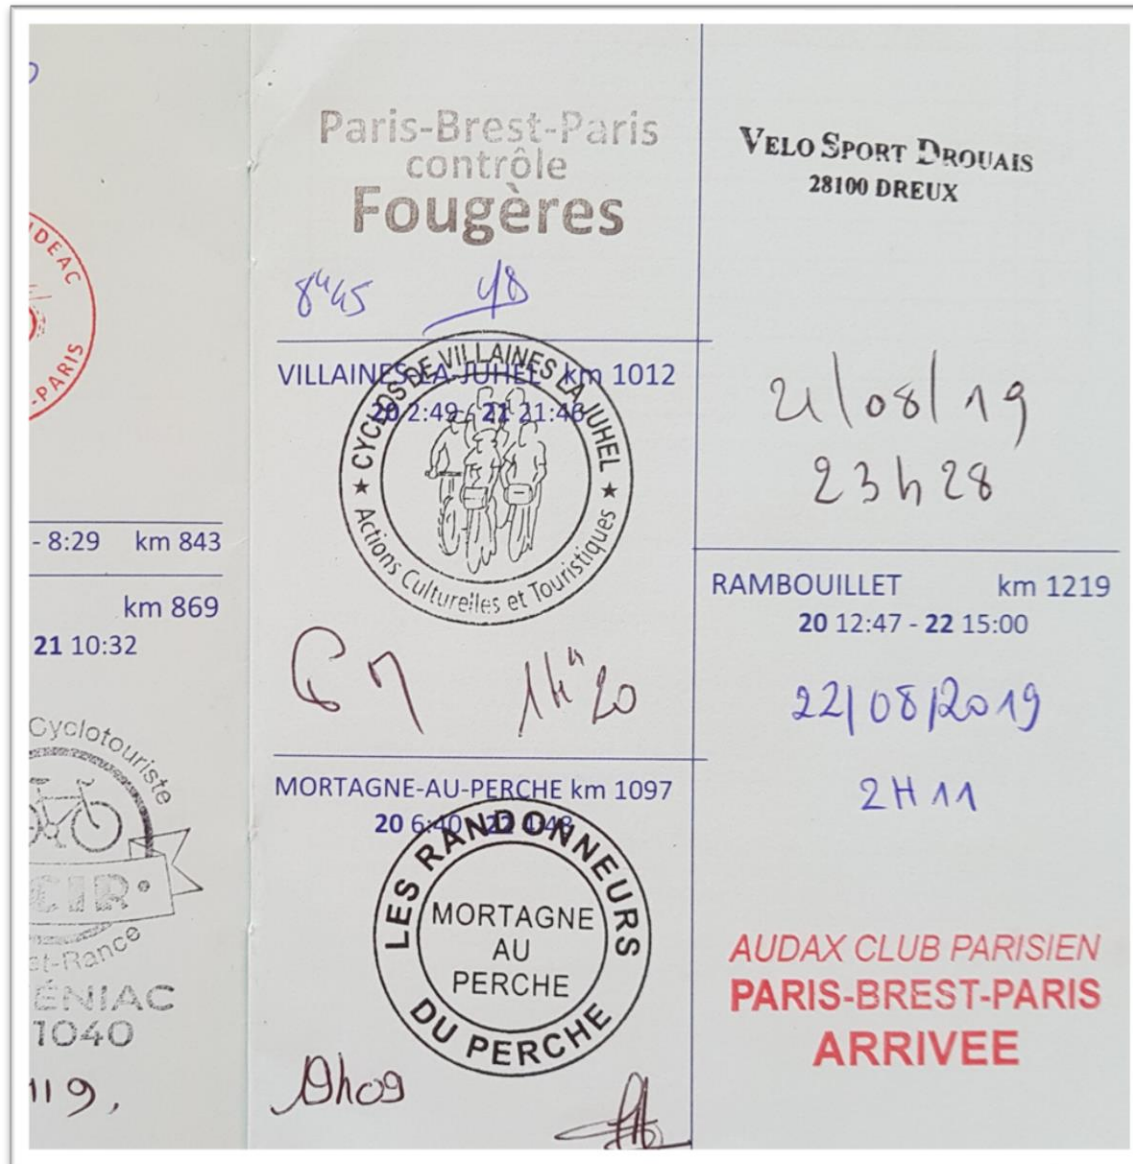 DEAC
-PARIS
- 8:29 km 843
km 869
21 10:32
Cyclotouriste
CIR
et-Rance
ÉNIAC
1040
119,
Paris-Brest-Paris
contrôle
Fougères
8h45
VILLAINES-LA-JUHEL km 1012
20 2:49 - 21 21:46
★ CYCLOS DE VILLAINES LA JUHEL ★
Actions Culturelles et Touristiques
14h20
MORTAGNE-AU-PERCHE km 1097
20 6:40 - 22 4:48
LES RANDONNEURS
MORTAGNE
AU
PERCHE
DU PERCHE
19h09
VELO SPORT DROUAIS
28100 DREUX
21/08/19
23h28
RAMBOUILLET km 1219
20 12:47 - 22 15:00
22/08/2019
2H11
AUDAX CLUB PARISIEN
PARIS-BREST-PARIS
ARRIVEE